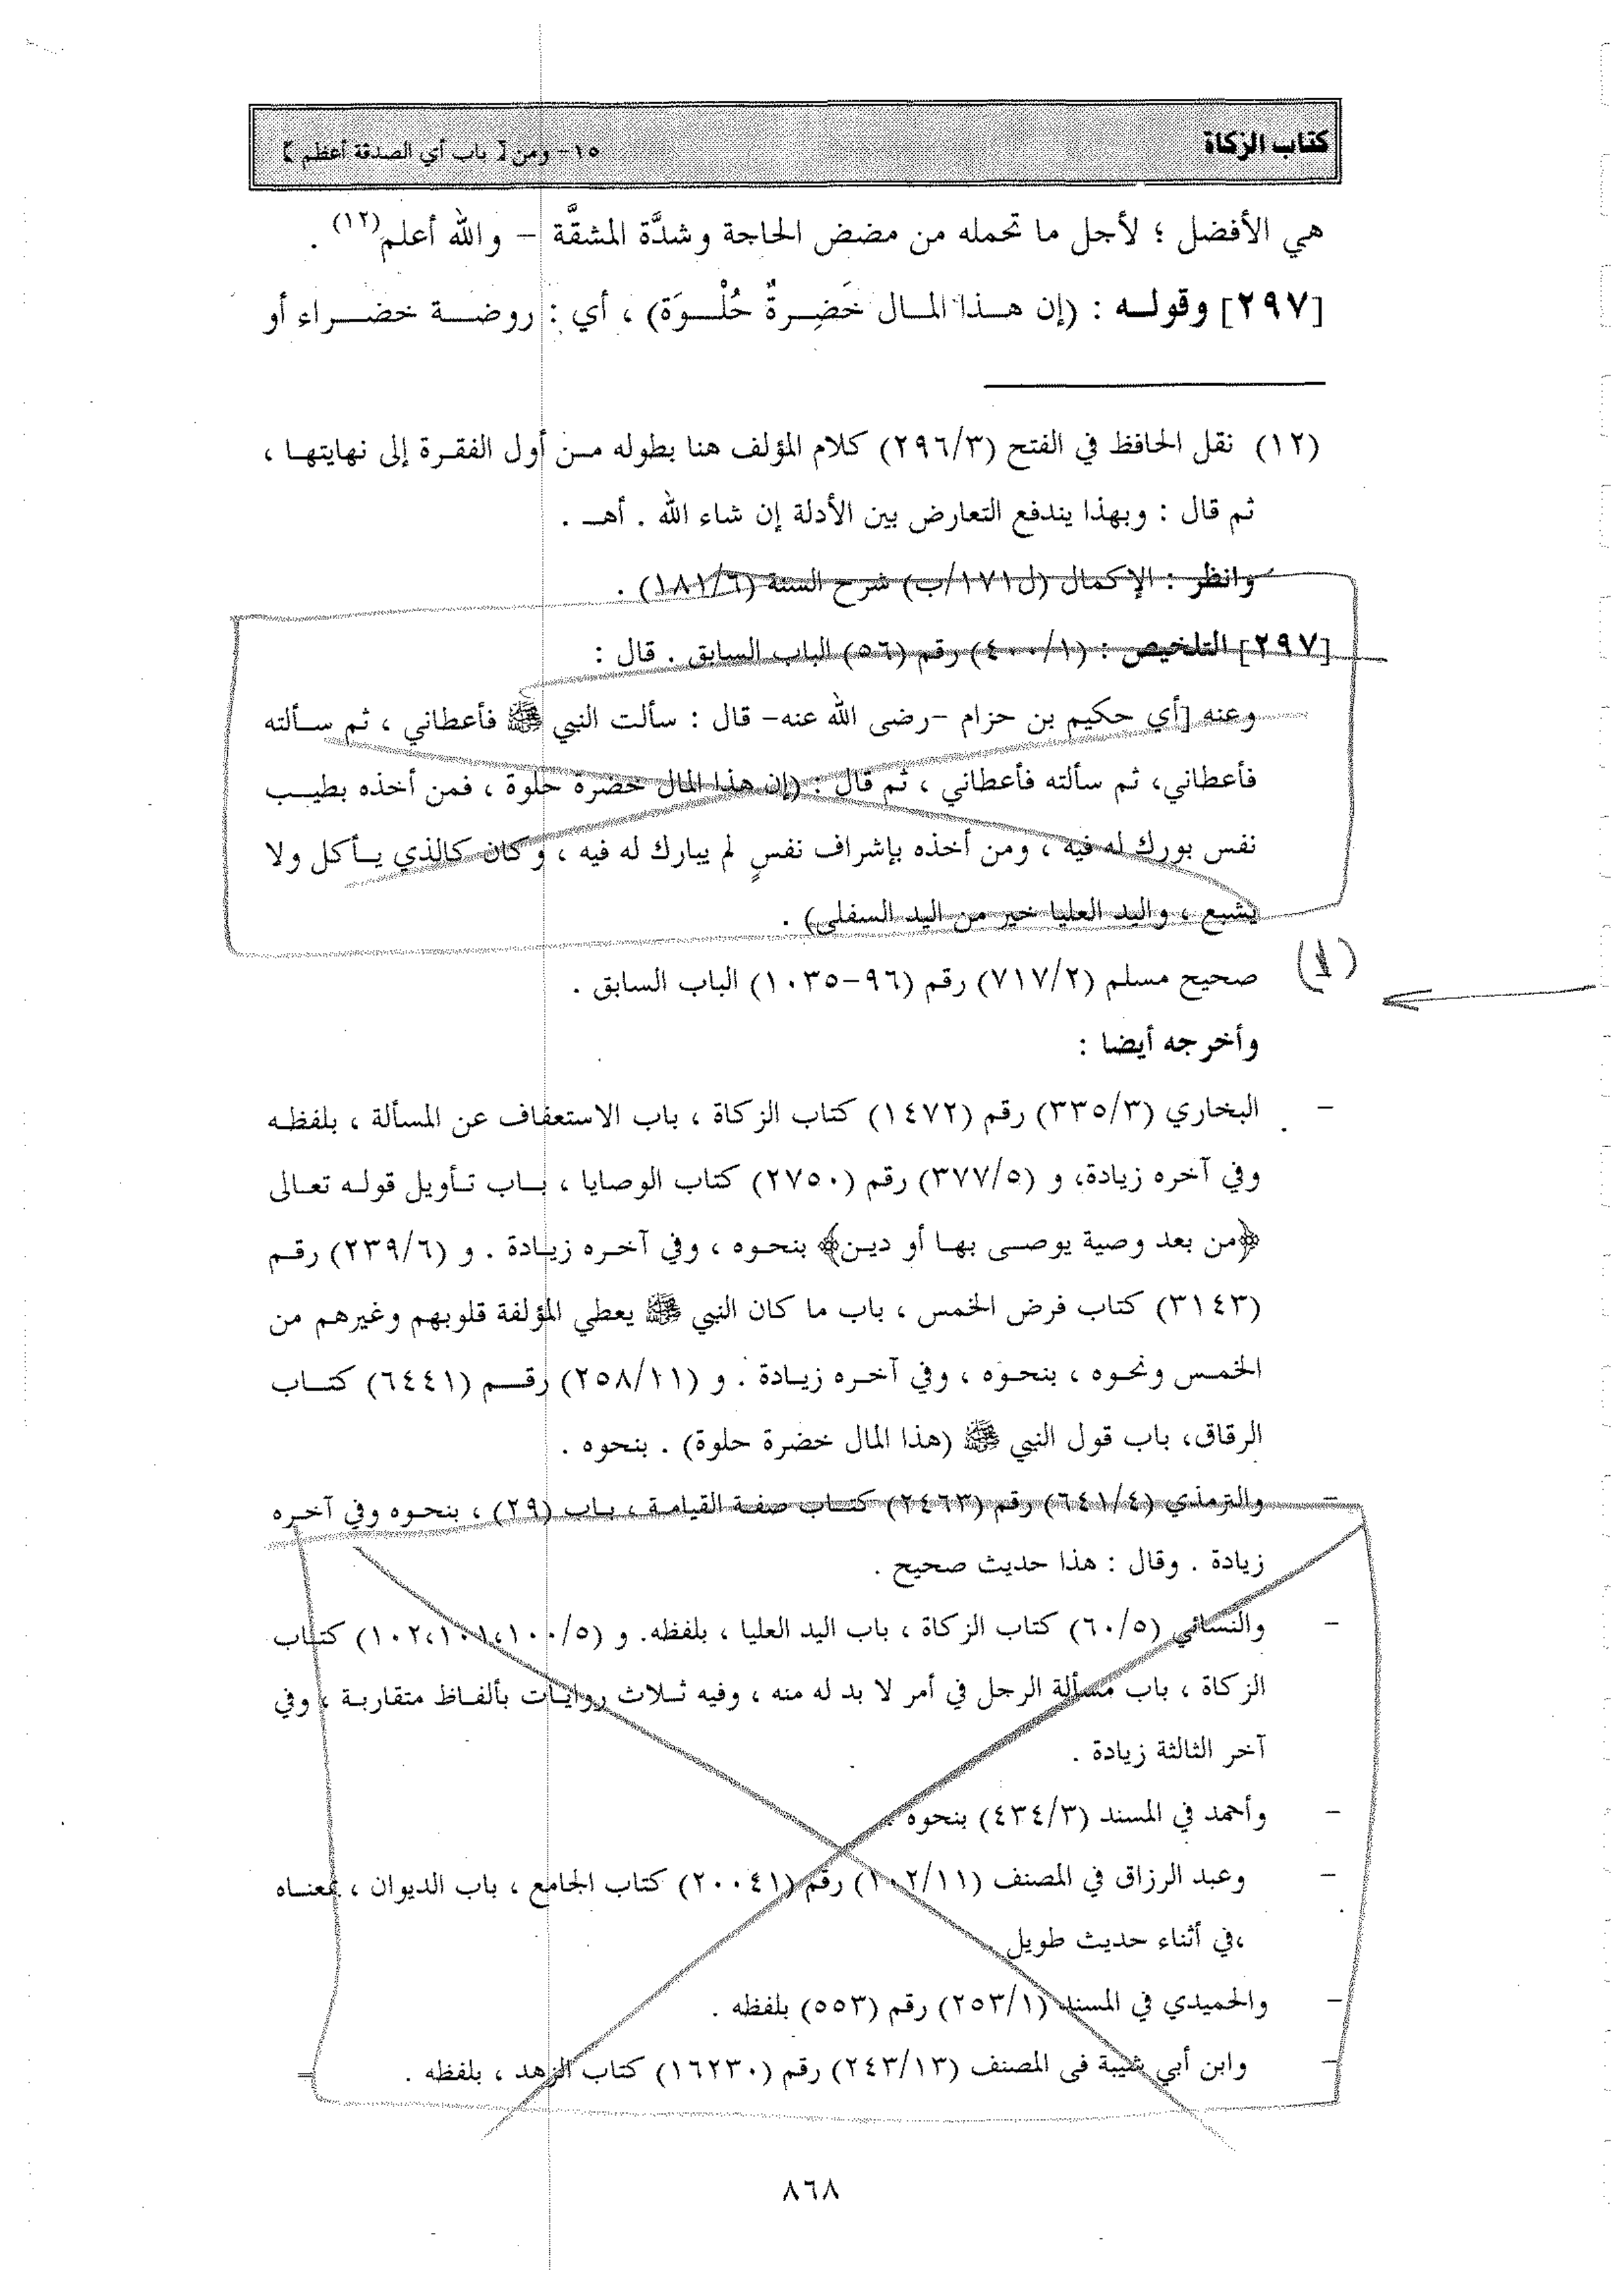 كتاب الزكاة
١٥- ومن [ باب أي الصدقة أعظم ]
هي الأفضل ؛ لأجل ما تحمله من مضض الحاجة وشدَّة المشقَّة – والله أعلم(١٢) .
[٢٩٧] وقوله : (إن هذا المال خَضِرةٌ حُلْوَة) ، أي : روضة خضراء أو
(١٢) نقل الحافظ في الفتح (٢٩٦/٣) كلام المؤلف هنا بطوله من أول الفقرة إلى نهايتها ،
ثم قال : وبهذا يندفع التعارض بين الأدلة إن شاء الله . أهـ .
وانظر : الإكمال (ل١٧١/ب) شرح السنة (١٨١/٦) .
[٢٩٧] التلخيص : (٤٠٠/١) رقم (٥٦) الباب السابق . قال :
وعنه [أي حكيم بن حزام -رضى الله عنه- قال : سألت النبي ﷺ فأعطاني ، ثم سألته
فأعطاني، ثم سألته فأعطاني ، ثم قال : (إن هذا المال خضرة حلوة ، فمن أخذه بطيب
نفس بورك له فيه ، ومن أخذه بإشراف نفسٍ لم يبارك له فيه ، وكان كالذي يأكل ولا
يشبع ، واليد العليا خير من اليد السفلى) .
(١)
صحيح مسلم (٧١٧/٢) رقم (٩٦-١٠٣٥) الباب السابق .
وأخرجه أيضا :
– البخاري (٣٣٥/٣) رقم (١٤٧٢) كتاب الزكاة ، باب الاستعفاف عن المسألة ، بلفظه
وفي آخره زيادة، و (٣٧٧/٥) رقم (٢٧٥٠) كتاب الوصايا ، باب تأويل قوله تعالى
﴿من بعد وصية يوصى بها أو دين﴾ بنحوه ، وفي آخره زيادة . و (٢٣٩/٦) رقم
(٣١٤٣) كتاب فرض الخمس ، باب ما كان النبي ﷺ يعطي المؤلفة قلوبهم وغيرهم من
الخمس ونحوه ، بنحوه ، وفي آخره زيادة . و (٢٥٨/١١) رقم (٦٤٤١) كتاب
الرقاق، باب قول النبي ﷺ (هذا المال خضرة حلوة) . بنحوه .
– والترمذي (٦٤١/٤) رقم (٢٤٦٣) كتاب صفة القيامة ، باب (٢٩) ، بنحوه وفي آخره
زيادة . وقال : هذا حديث صحيح .
– والنسائي (٦٠/٥) كتاب الزكاة ، باب اليد العليا ، بلفظه. و (١٠٢،١٠١،١٠٠/٥) كتاب
الزكاة ، باب مسألة الرجل في أمر لا بد له منه ، وفيه ثلاث روايات بألفاظ متقاربة ، وفي
آخر الثالثة زيادة .
– وأحمد في المسند (٤٣٤/٣) بنحوه .
– وعبد الرزاق في المصنف (١٠٢/١١) رقم (٢٠٠٤١) كتاب الجامع ، باب الديوان ، بمعناه
،في أثناء حديث طويل
– والحميدي في المسند (٢٥٣/١) رقم (٥٥٣) بلفظه .
– وابن أبي شيبة فى المصنف (٢٤٣/١٣) رقم (١٦٢٣٠) كتاب الزهد ، بلفظه .
٨٦٨